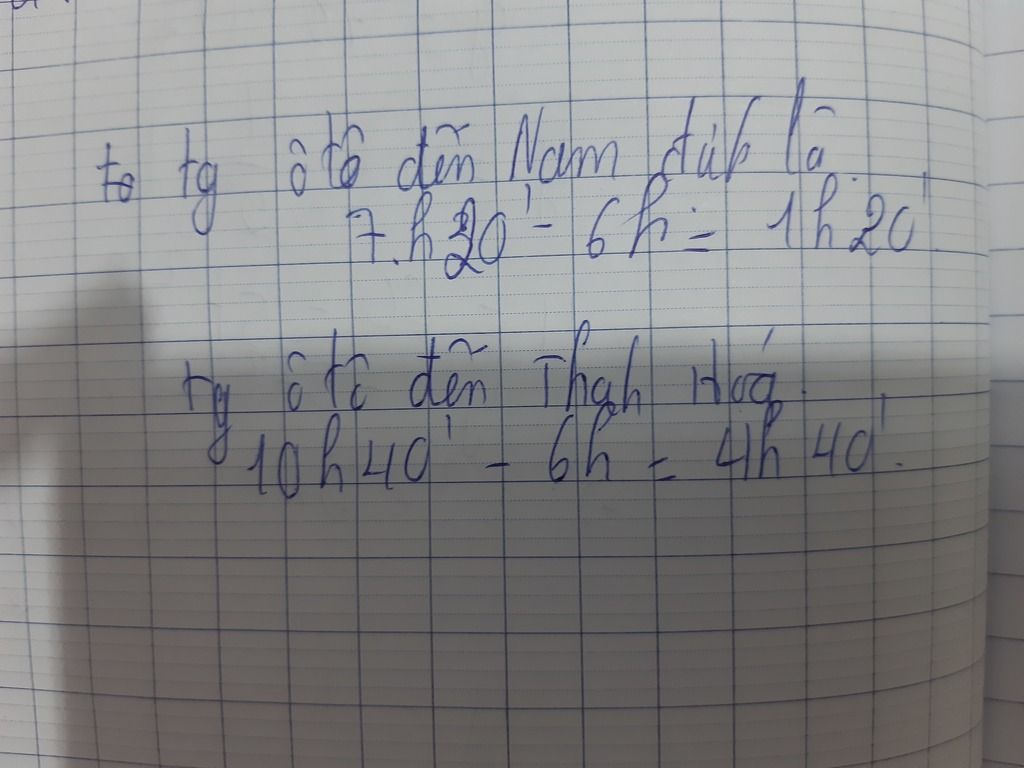 tg ôtô đến Nam định là
7h20' - 6h = 1h20'
tg ôtô đến Thah Hoá
10h40' - 6h = 4h40'.